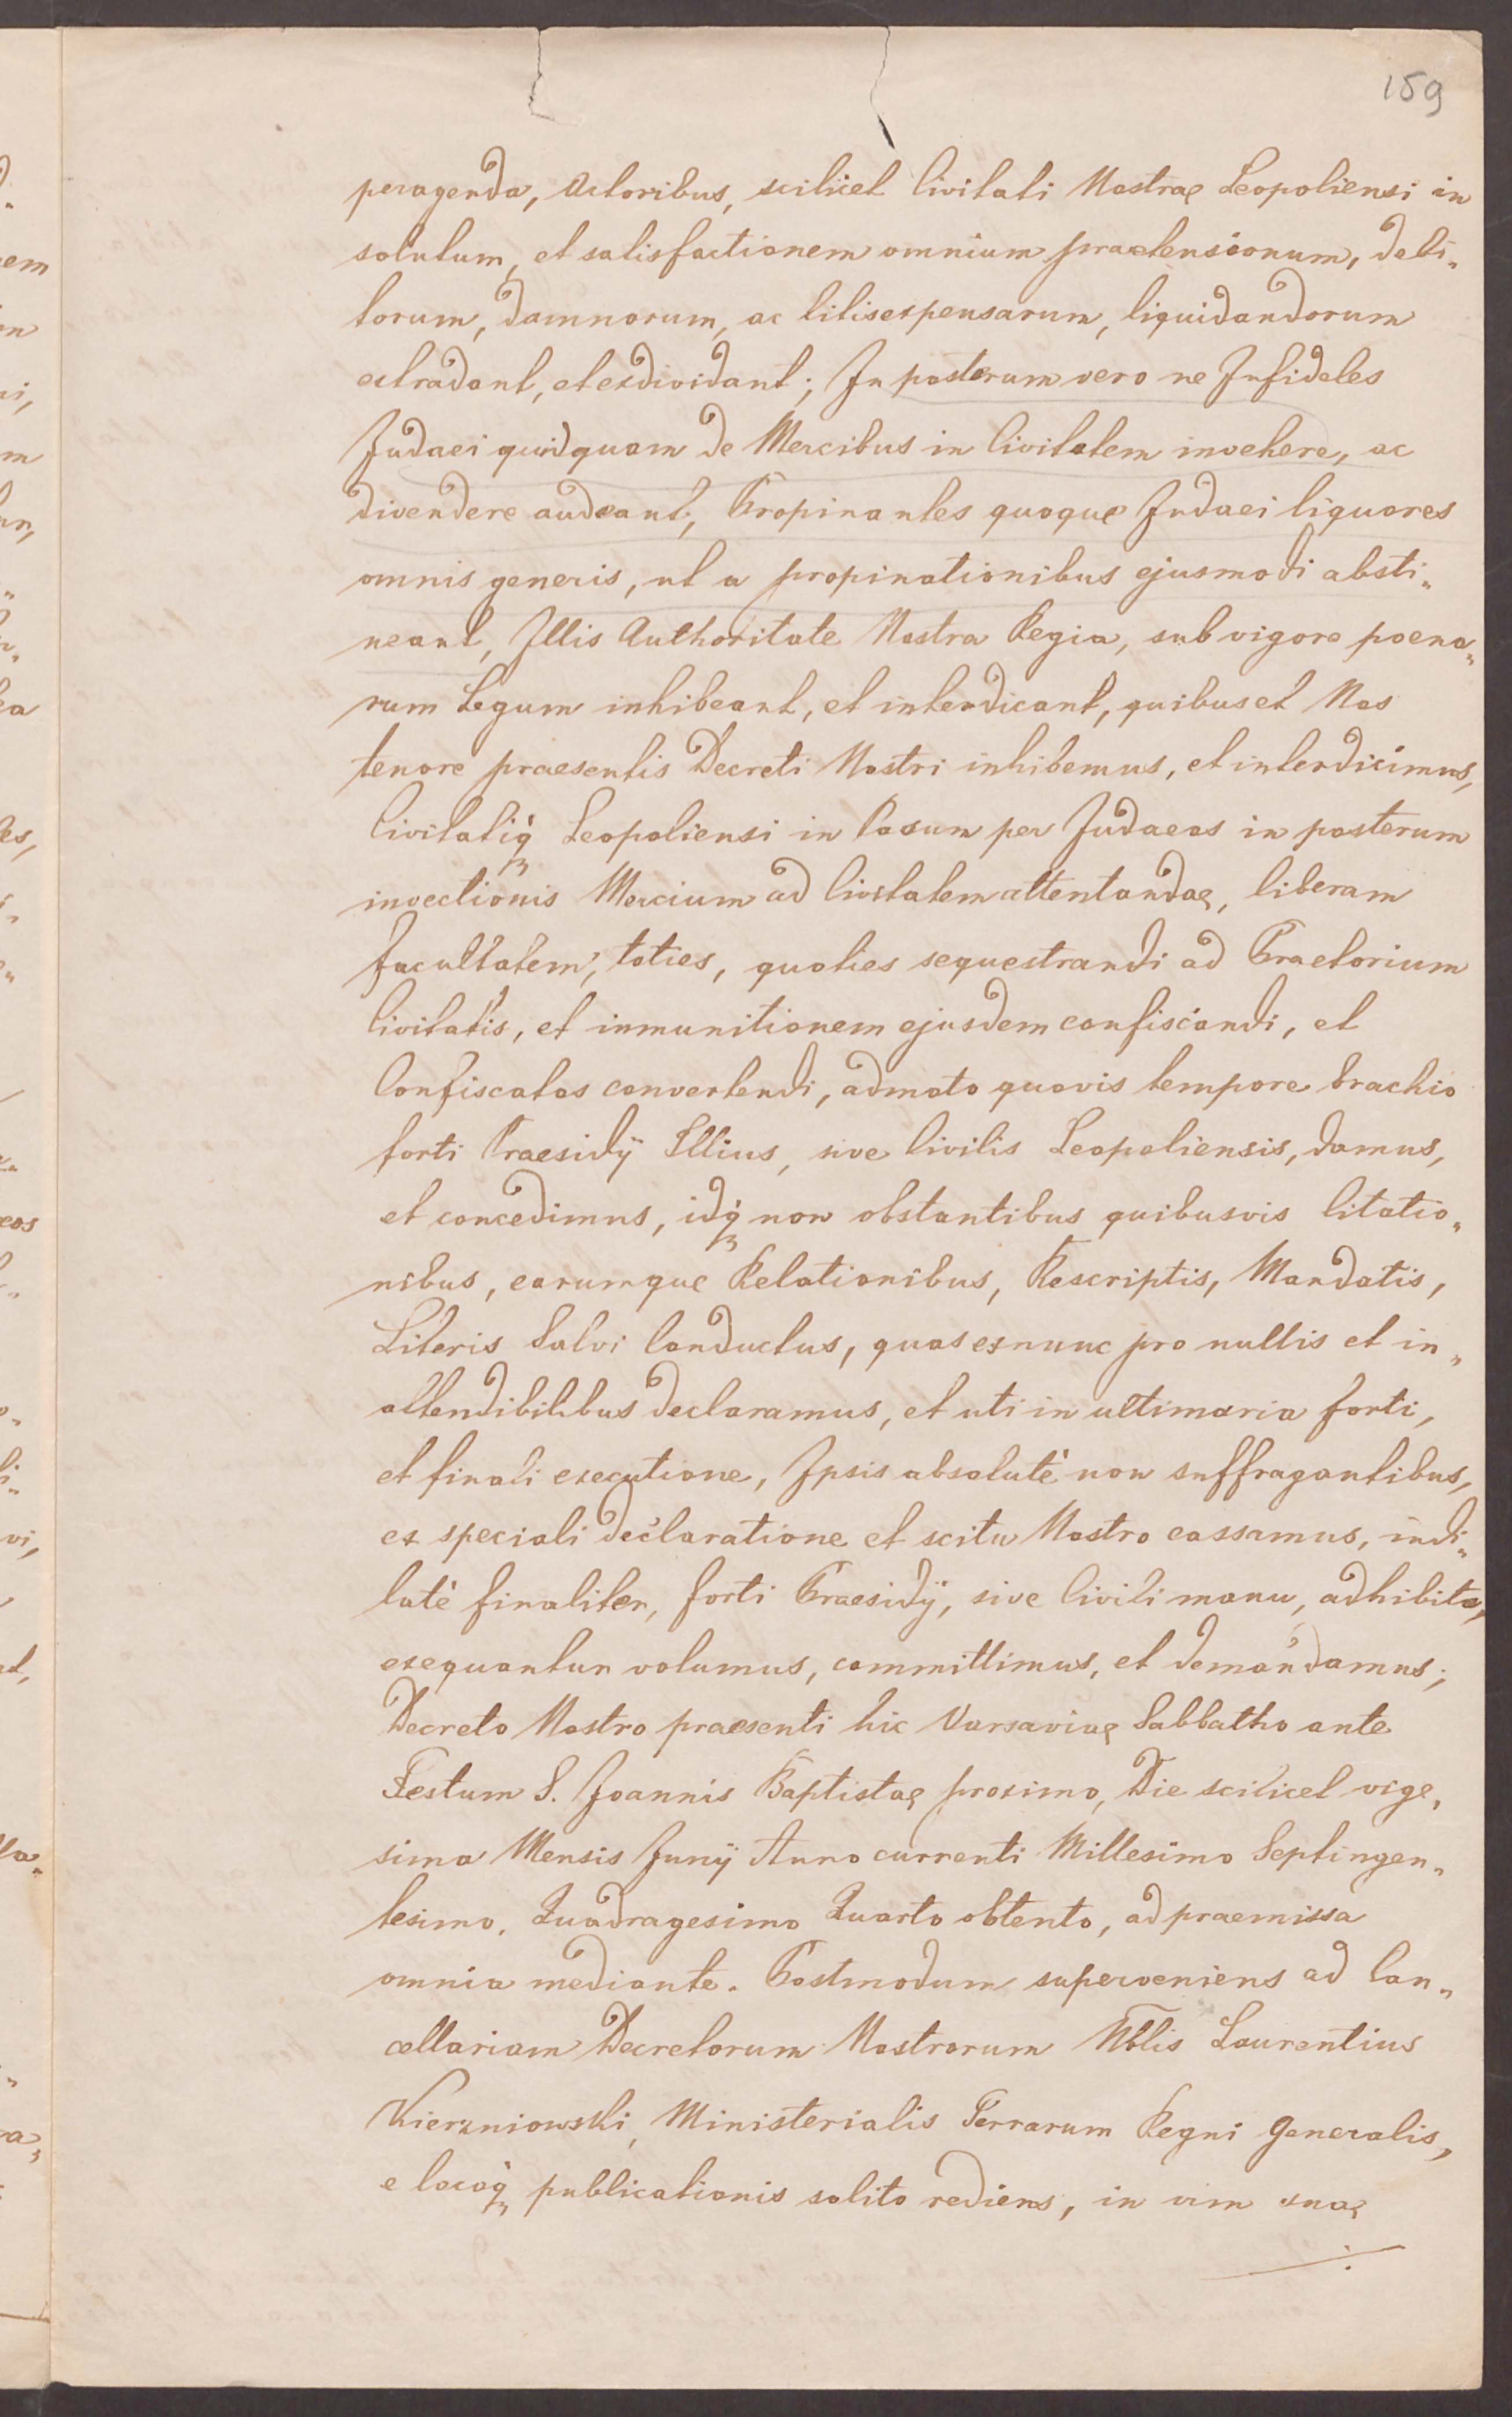 159
peragenda, Actoribus, scilicet Civitati Nostrae Leopoliensi in
solutum, et satisfactionem omnium praetensionum, debi„
torum, damnorum, ac litisexpensarum, liquidandorum
extradant, et exdividant; In posterum vero ne Infideles
Judaei quidquam de Mercibus in Civitatem invehere, ac
divendere audeant; Propinantes quoque Judaei liquores
omnis generis, ut a propinationibus ejusmodi absti„
neant, Illis Authoritate Nostra Regia, sub vigore poena„
rum Legum inhibeant, et interdicant, quibus et Nos
tenore praesentis Decreti Nostri inhibemus, et interdicimus,
Civitatiq̀ Leopoliensi in Casum per Judaeos in posterum
invectionis Mercium ad Civitatem attentandae, liberam
facultatem, toties, quoties sequestrandi ad Praetorium
Civitatis, et inmunitionem ejusdem confiscandi, et
Confiscatas convertendi, admoto quovis tempore brachio
forti Praesidÿ Illius, sive Civilis Leopoliensis, damus,
et concedimus, idq̀ non obstantibus quibusvis Citatio„
nibus, earumque Relationibus, Rescriptis, Mandatis,
Literis Salvi Conductus, quas exnunc pro nullis et in„
attendibilibus declaramus, et uti in ultimaria forti,
et finali executione, Ipsis absolutè non suffragantibus,
ex speciali declaratione et scitu Nostro cassamus, indi„
latè finaliter, forti Praesidÿ, sive Civili manu, adhibita,
exequantur volumus, committimus, et demandamus;
Decreto Nostro praesenti hic Varsaviae Sabbatho ante
Festum S. Joannis Baptistae proximo, Die scilicet vige„
sima Mensis Junÿ Anno currenti Millesimo Septingen„
tesimo, Quadragesimo Quarto obtento, ad praemissa
omnia mediante. Postmodum superveniens ad Can„
cellariam Decretorum Nostrorum Nblis Laurentius
Kierzniowski, Ministerialis Terrarum Regni Generalis,
e locoq̀ publicationis solito rediens, in vim suae